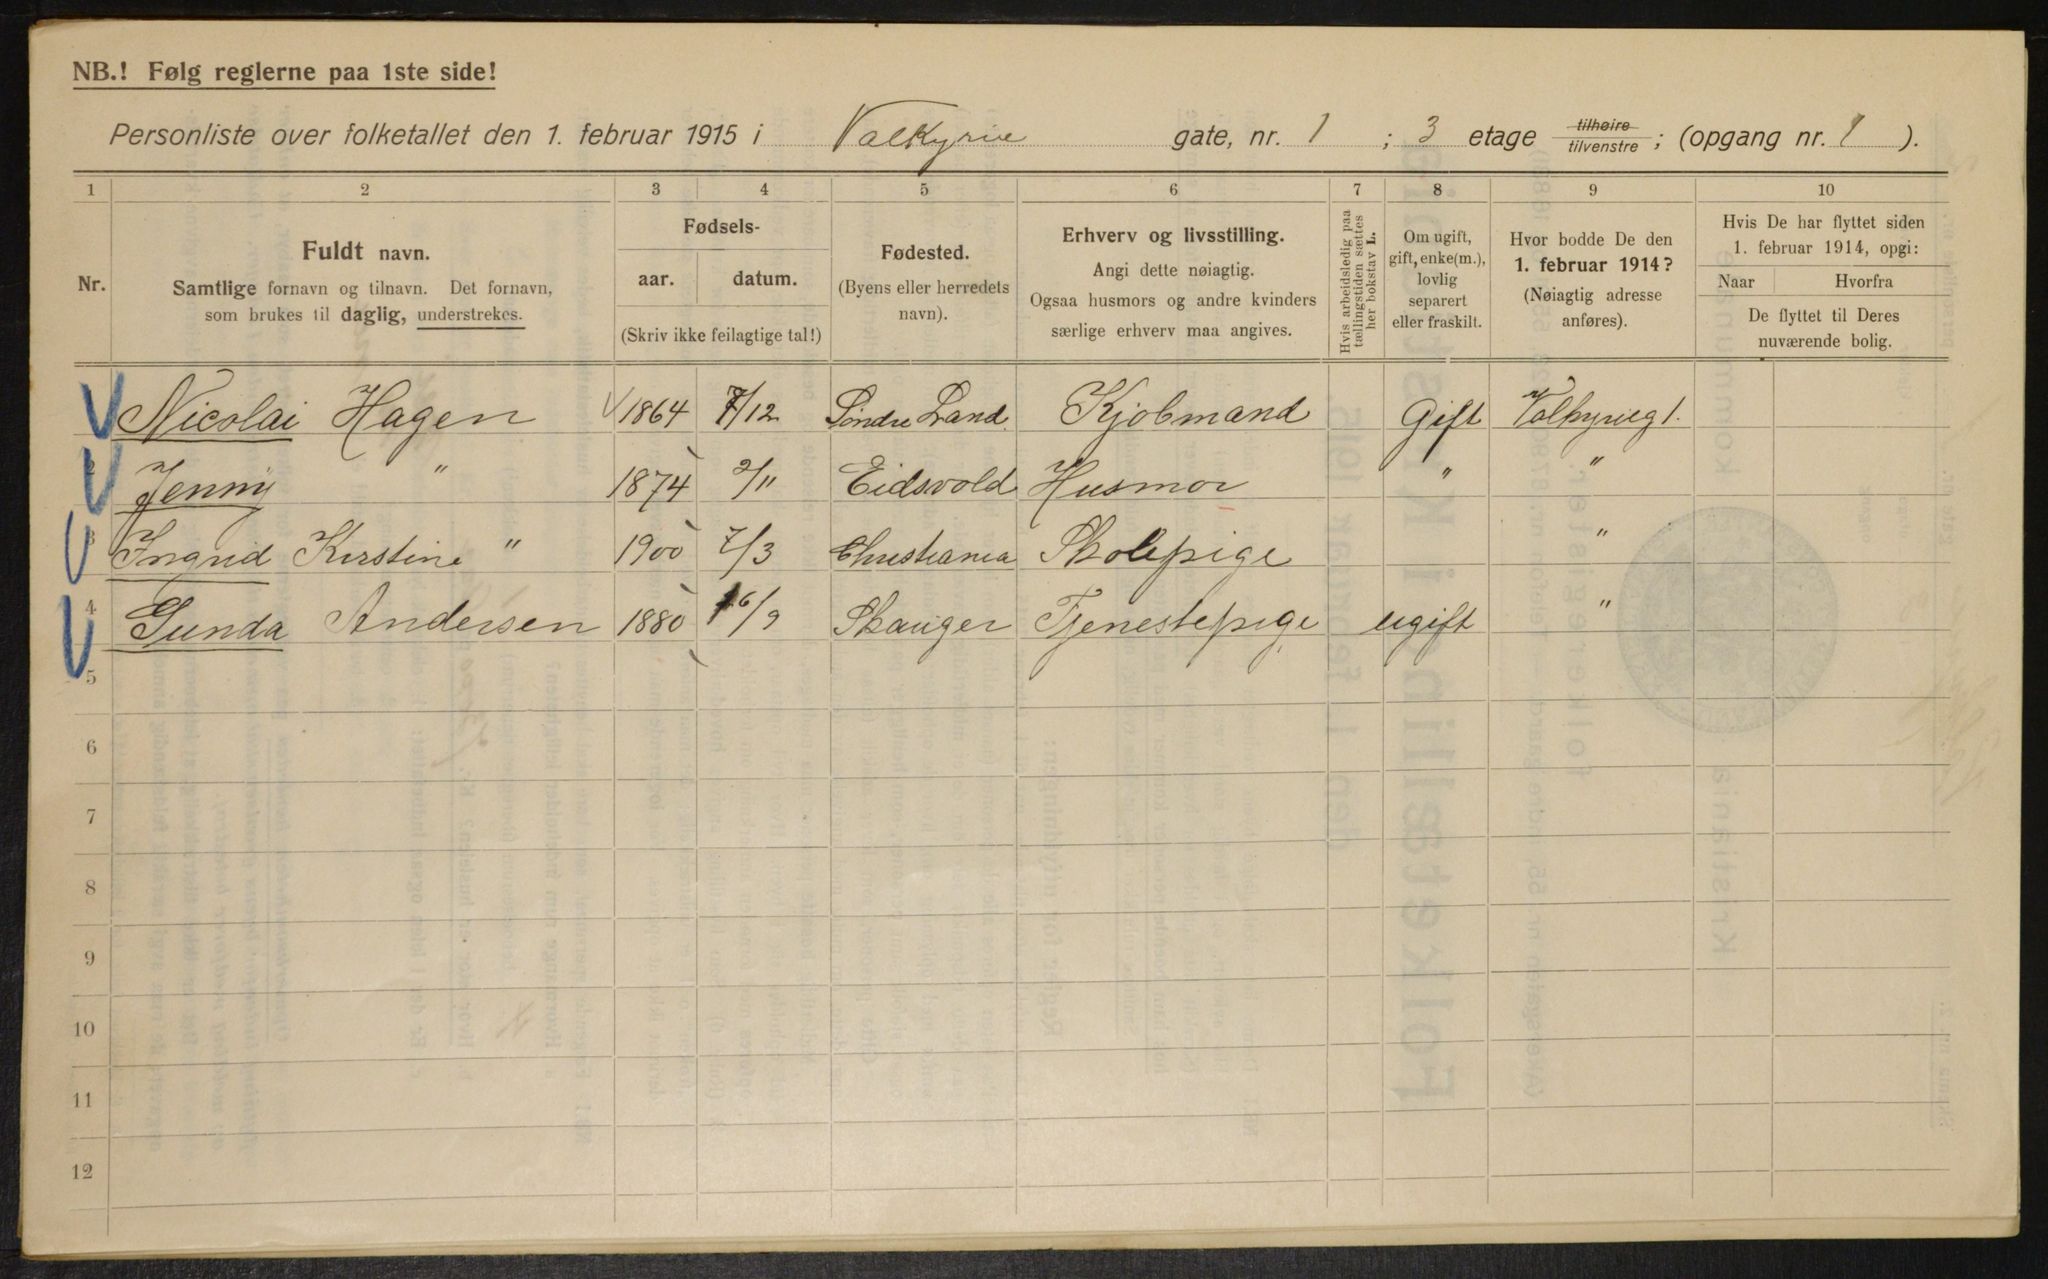 NB.! Følg reglerne paa 1ste side!
Personliste over folketallet den 1. februar 1915 i Valkyrie gate, nr. 1 ; 3 etage tilhøire tilvenstre ; (opgang nr. 1 ).
1 2 3 4 5 6 7 8 9 10
Nr.
Fuldt navn.
Samtlige fornavn og tilnavn. Det fornavn,
som brukes til daglig, understrekes.
Fødsels-
aar. datum.
(Skriv ikke feilagtige tal!)
Fødested.
(Byens eller herredets
navn).
Erhverv og livsstilling.
Angi dette nøiagtig.
Ogsaa husmors og andre kvinders
særlige erhverv maa angives.
Hvis arbeidsledig paa
tællingstiden sættes
her bokstav L.
Om ugift,
gift, enke(m.),
lovlig
separert
eller fraskilt.
Hvor bodde De den
1. februar 1914?
(Nøiagtig adresse
anføres).
Hvis De har flyttet siden
1. februar 1914, opgi:
Naar Hvorfra
De flyttet til Deres
nuværende bolig.
Nicolai Hagen 1864 7/12 Söndre Land Kjöbmand Gift Valkyrieg 1.
2 Jenny " 1874 2/11 Eidsvold Husmor " "
3 Ingrid Kirstine " 1900 7/3 Christiania Skolepige "
4 Gunda Andersen 1880 16/9 Skauger Tjenestepige ugift "
5
6
7
8
9
10
11
12